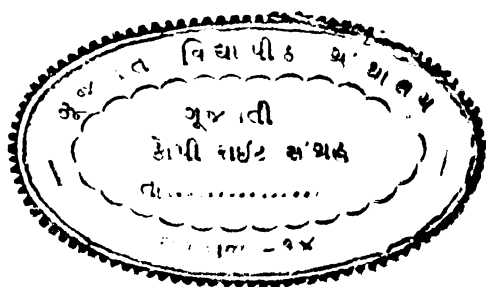 ગૂજરાત વિદ્યાપીઠ ગ્રંથાલય
ગૂજરાતી
કોપી રાઈટ સંગ્રહ
તા..................
- ૧૪